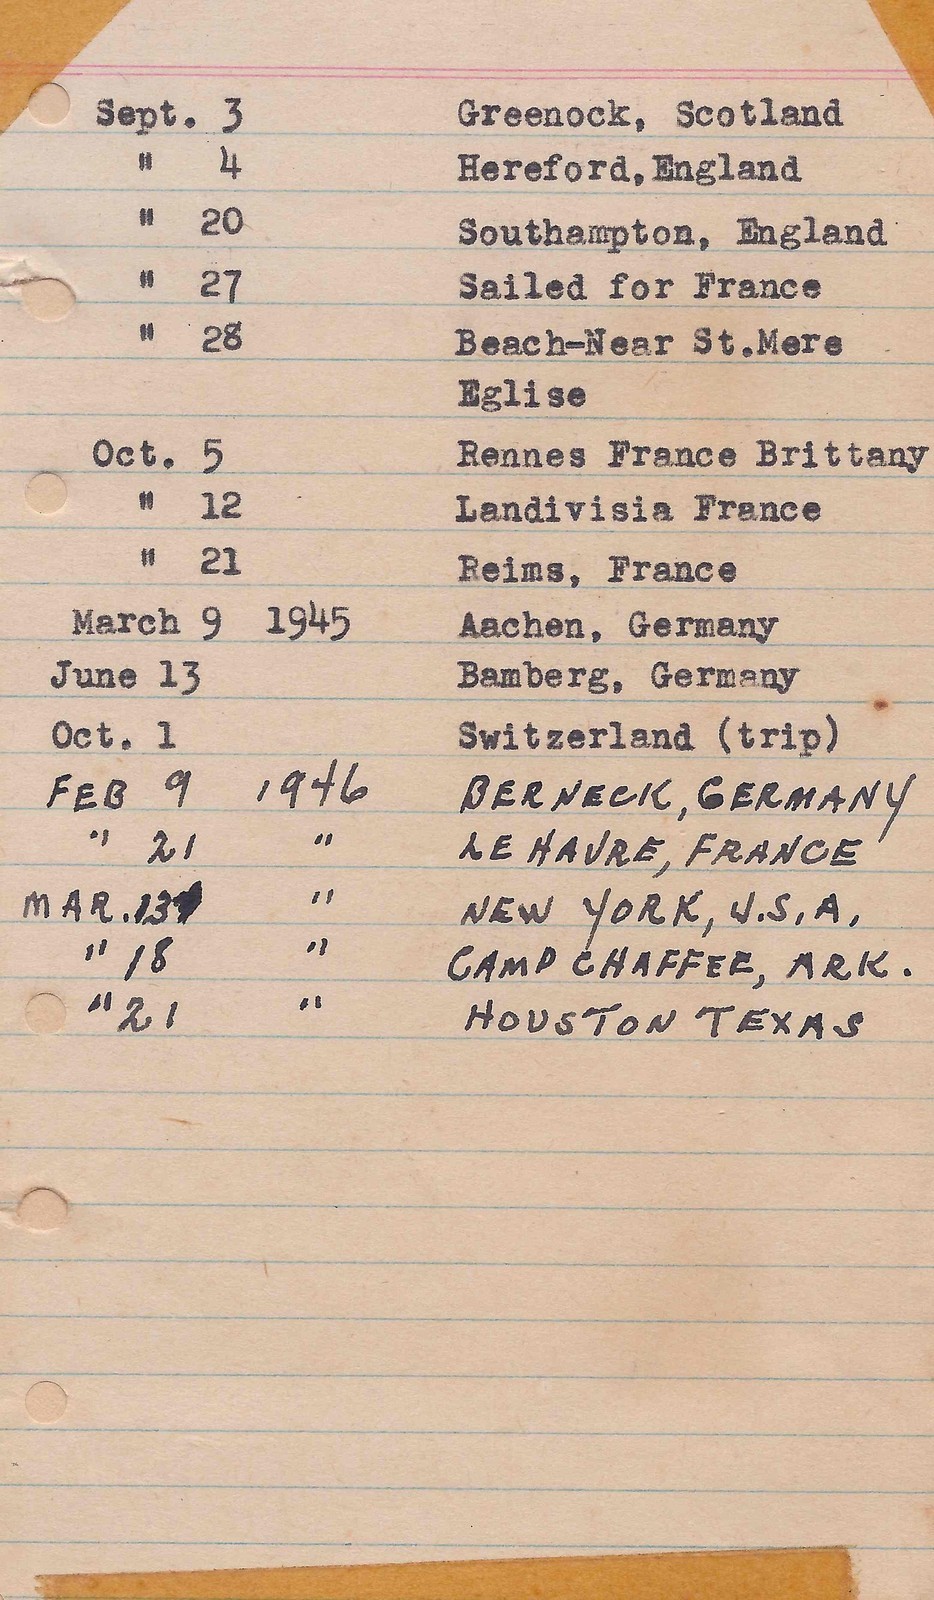 Sept. 3 Greenock, Scotland
" 4 Hereford,England
" 20 Southampton, England
" 27 Sailed for France
" 28 Beach-Near St.Mere
Eglise
Oct. 5 Rennes France Brittany
" 12 Landivisia France
" 21 Reims, France
March 9 1945 Aachen, Germany
June 13 Bamberg, Germany
Oct. 1 Switzerland (trip)
FEB 9 1946 BERNECK, GERMANY
" 21 " LE HAVRE, FRANCE
MAR. 13 " NEW YORK, U.S.A.
" 18 " CAMP CHAFFEE, ARK.
" 21 " HOUSTON TEXAS